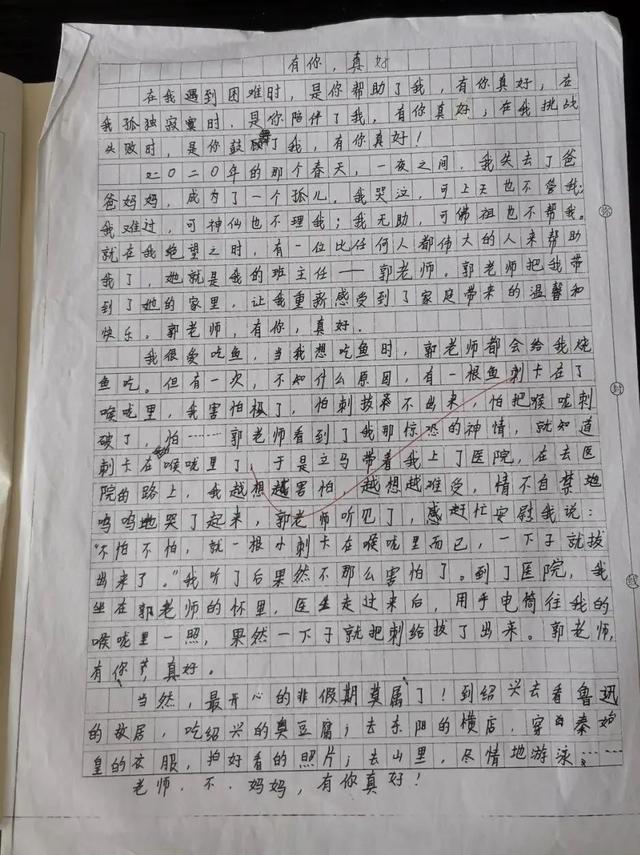 有你，真好
在我遇到困难时，是你帮助了我，有你真好，在
我孤独寂寞时，是你陪伴了我，有你真好，在我挑战
失败时，是你鼓舞了我，有你真好！
二〇二〇年的那个春天，一夜之间，我失去了爸
爸妈妈，成为了一个孤儿。我哭泣，可上天也不管我；
我难过，可神仙也不理我；我无助，可佛祖也不帮我。
就在我绝望之时，有一位比任何人都伟大的人来帮助
我了，她就是我的班主任——郭老师，郭老师把我带
到了她的家里，让我重新感受到了家庭带来的温馨和
快乐。郭老师，有你，真好。
我很爱吃鱼，当我想吃鱼时，郭老师都会给我烧
鱼吃。但有一次，不知什么原因，有一根鱼刺卡在了
喉咙里，我害怕极了，怕刺拔不出来，怕把喉咙刺
破了，怕……郭老师看到了我那惊恐的神情，就知道
刺卡在喉咙里了，于是立马带着我上了医院，在去医
院的路上，我越想越害怕，越想越难受，情不自禁地
呜呜地哭了起来，郭老师听见了，赶忙安慰我说：
“不怕不怕，就一根小刺卡在喉咙里而已，一下子就拔
出来了。”我听了后果然不那么害怕了。到了医院，我
坐在郭老师的怀里，医生走过来后，用手电筒往我的
喉咙里一照，果然一下子就把刺给拔了出来。郭老师，
有你，真好。
当然，最开心的非假期莫属了！到绍兴去看鲁迅
的故居，吃绍兴的臭豆腐；去东阳的横店，穿秦始
皇的衣服，拍好看的照片；去山里，尽情地游泳……
老师，不，妈妈，有你真好！
密
封
线